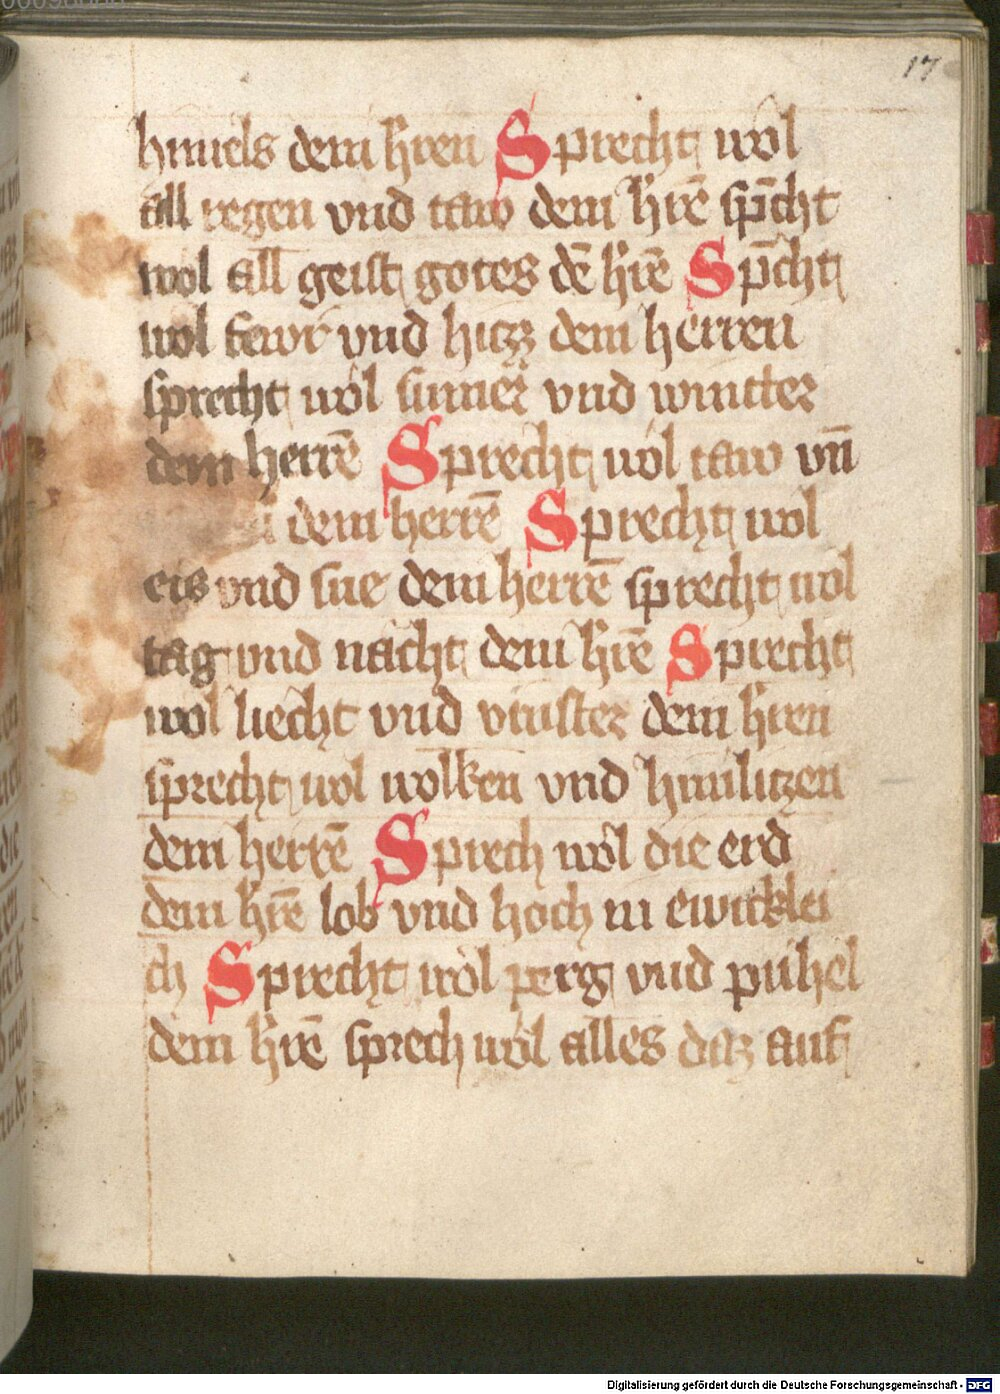 17
himels dem hren Sprecht wol
all regen vnd taw dem hrē spcht
wol all geist gotes dē hrē Spcht
wol fewr vnd hicz dem herren
sprecht wol sumer vnd wintter
dem herrē Sprecht wol taw vn̄
dem herrē Sprecht wol
eis vnd sne dem herrē sprecht wol
tag vnd nacht dem hrē Sprecht
wol liecht vnd vinster dem hren
sprecht wol wolken vnd himlitzen
dem herrē Sprech wol die erd
dem hrē lob vnd hoch in ewicklei
ch Sprecht wol perg vnd pühel
dem hrē sprech wol alles daz auf
Digitalisierung gefördert durch die Deutsche Forschungsgemeinschaft - DFG